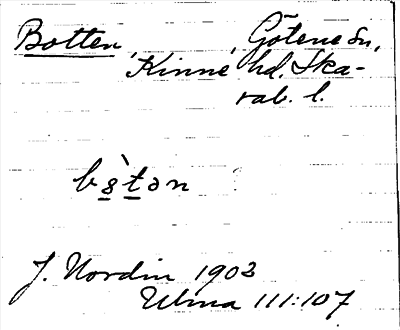 Botten, Götene sn,
Kinne hd. Ska-
rab. l.
bs̲̀t̲ən
J. Nordin 1903
Ulma 111:107